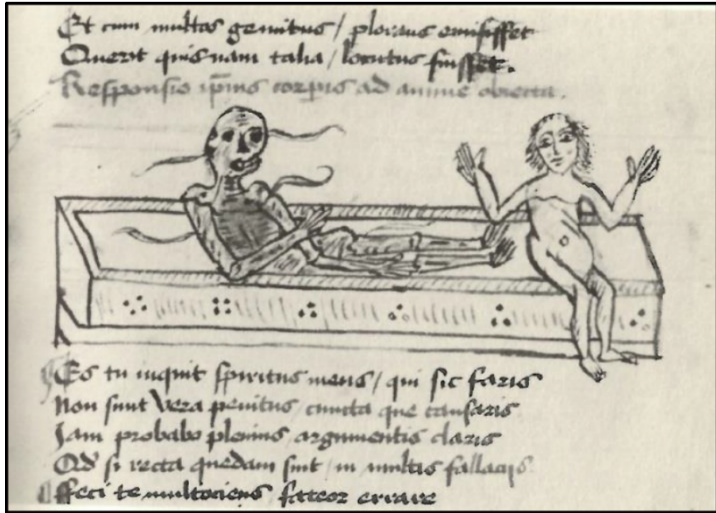 Et cum multos gemitus / plorans emisisset
Querit quisnam talia / locutus fuisset.
Responsio ip̄ius corpis ad anime obiecta.
Es tu inquit spiritus meus / qui sic faris
Non sunt vera penitus / cuncta que causaris
Jam probabo plenius argumentis claris
Qd si recta quedam sint / in multis fallacijs
ffeci te multociens / fateor errare